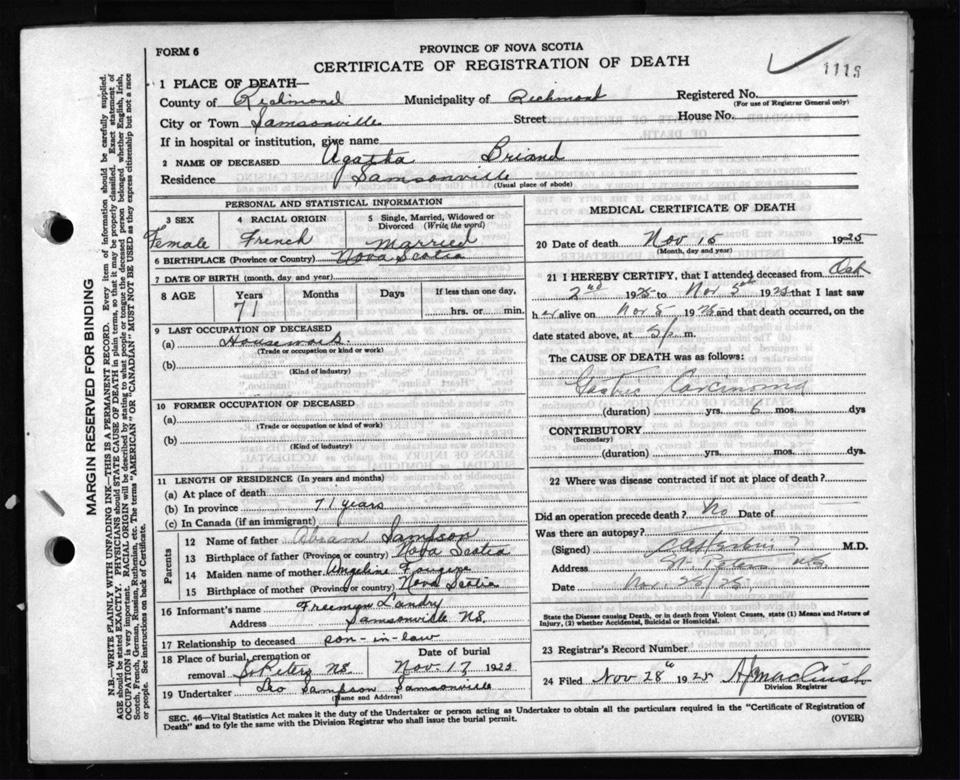 FORM 6
PROVINCE OF NOVA SCOTIA
CERTIFICATE OF REGISTRATION OF DEATH
1115
1 PLACE OF DEATH—
County of Richmond Municipality of Richmont Registered No.
(For use of Registrar General only)
City or Town Samsonville Street House No.
If in hospital or institution, give name
2 NAME OF DECEASED Agatha Briand
Residence Samsonville
(Usual place of abode)
PERSONAL AND STATISTICAL INFORMATION
3 SEX 4 RACIAL ORIGIN 5 Single, Married, Widowed or Divorced (Write the word)
Female French Married
6 BIRTHPLACE (Province or Country) Nova Scotia
7 DATE OF BIRTH (month, day and year)
8 AGE Years Months Days If less than one day,
71 hrs. or min.
9 LAST OCCUPATION OF DECEASED
(a) Housework
(Trade or occupation or kind or work)
(b)
(Kind of industry)
10 FORMER OCCUPATION OF DECEASED
(a)
(Trade or occupation or kind of work)
(b)
(Kind of industry)
11 LENGTH OF RESIDENCE (In years and months)
(a) At place of death
(b) In province 71 years
(c) In Canada (if an immigrant)
Parents
12 Name of father Abram Sampson
13 Birthplace of father (Province or country) Nova Scotia
14 Maiden name of mother Angeline
15 Birthplace of mother (Province or country) Nova Scotia
16 Informant's name Freemyn Landry
Address Samsonville NS.
17 Relationship to deceased son-in-law
18 Place of burial, cremation or removal St Peters NS Date of burial Nov. 17 1925
19 Undertaker Leo Sampson Samsonville
(Name and Address)
MEDICAL CERTIFICATE OF DEATH
20 Date of death Nov 15 1925
(Month, day and year)
21 I HEREBY CERTIFY, that I attended deceased from Oct
2nd 1925 to Nov 5th 1925 that I last saw
her alive on Nov 5 1925 and that death occurred, on the
date stated above, at 5 p. m.
The CAUSE OF DEATH was as follows:
Gastric Carcinoma
(duration) yrs. 6 mos. dys
CONTRIBUTORY
(Secondary)
(duration) yrs. mos. dys.
22 Where was disease contracted if not at place of death?
Did an operation precede death? No Date of
Was there an autopsy?
(Signed) M.D.
Address St. Peters N.S.
Date Nov.
State the Disease causing Death, or in death from Violent Causes, state (1) Means and Nature of Injury, (2) whether Accidental, Suicidal or Homicidal.
23 Registrar's Record Number
24 Filed Nov 28th 1925
Division Registrar
SEC. 46—Vital Statistics Act makes it the duty of the Undertaker or person acting as Undertaker to obtain all the particulars required in the "Certificate of Registration of
Death" and to fyle the same with the Division Registrar who shall issue the burial permit. (OVER)
MARGIN RESERVED FOR BINDING
N.B.—WRITE PLAINLY WITH UNFADING INK—THIS IS A PERMANENT RECORD. Every item of information should be carefully supplied.
AGE should be stated EXACTLY. PHYSICIANS should STATE CAUSE OF DEATH in plain terms, so that it may be properly classified. Exact statement of
OCCUPATION is very important. RACIAL ORIGIN will be described by stating to what people or tongue the deceased person belonged whether English, Irish,
Scotch, French, German, Russian, Ruthenian, etc. The terms "AMERICAN" or "CANADIAN" MUST NOT BE USED as they express citizenship but not a race
or people. See instructions on back of Certificate.